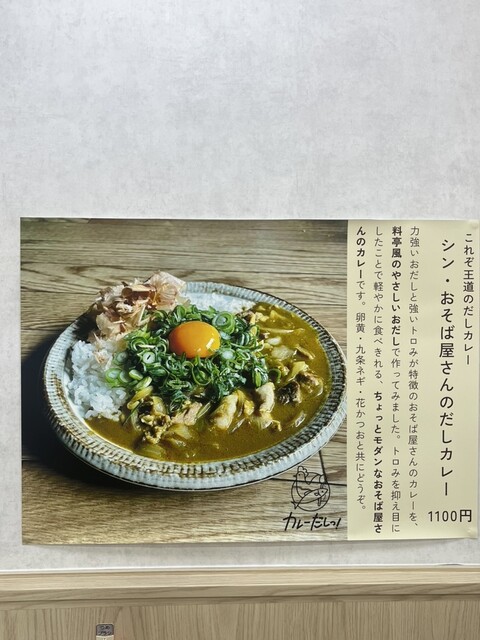 これぞ王道のだしカレー
シン・おそば屋さんのだしカレー
1100円
力強いおだしと強いトロみが特徴のおそば屋さんのカレーを、
料亭風のやさしいおだしで作ってみました。トロみを抑え目に
したことで軽やかに食べきれる、ちょっとモダンなおそば屋さ
んのカレーです。卵黄・九条ネギ・花かつおと共にどうぞ。
カレーだしっ!